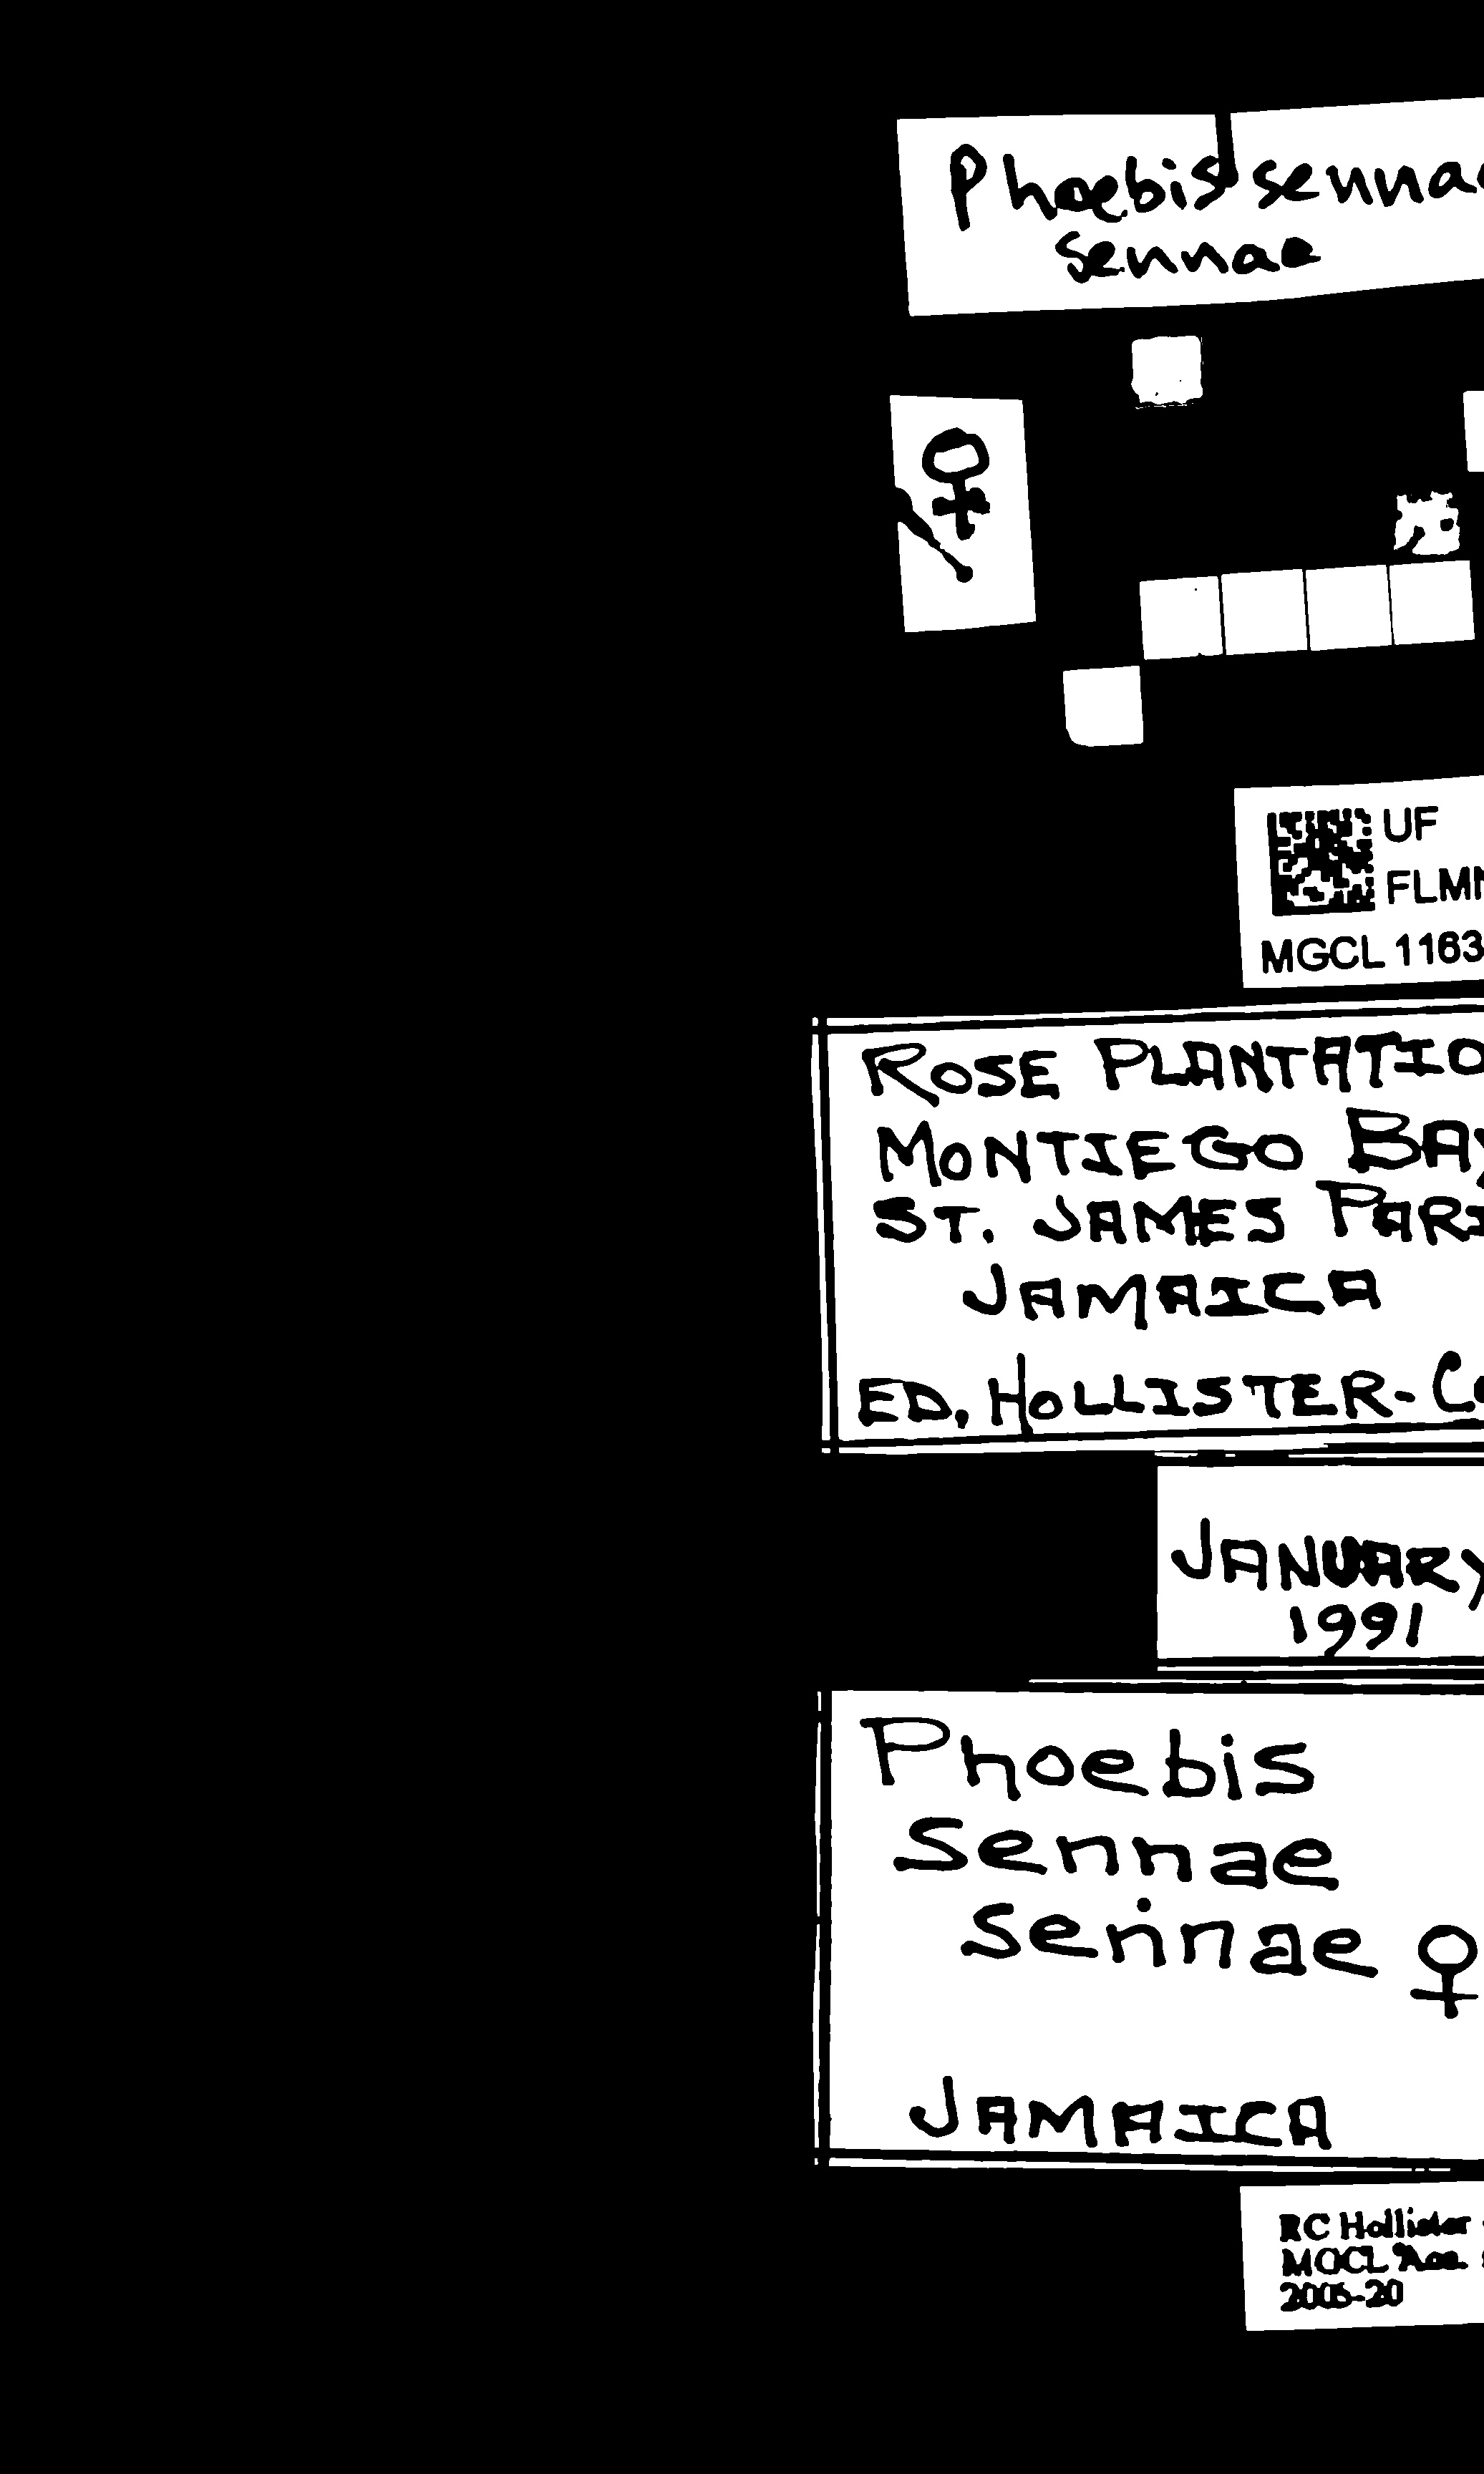 Phoebis sennae
sennae
♀
UF
FLMN
MGCL 1163
ROSE PLANTATIO
MONTIEGO BAY
ST. JAMES PARI
JAMAICA
ED. HOLLISTER - Co
JANUARY
1991
Phoebis
sennae
sennae ♀
JAMAICA
RC Hollister
2005-20